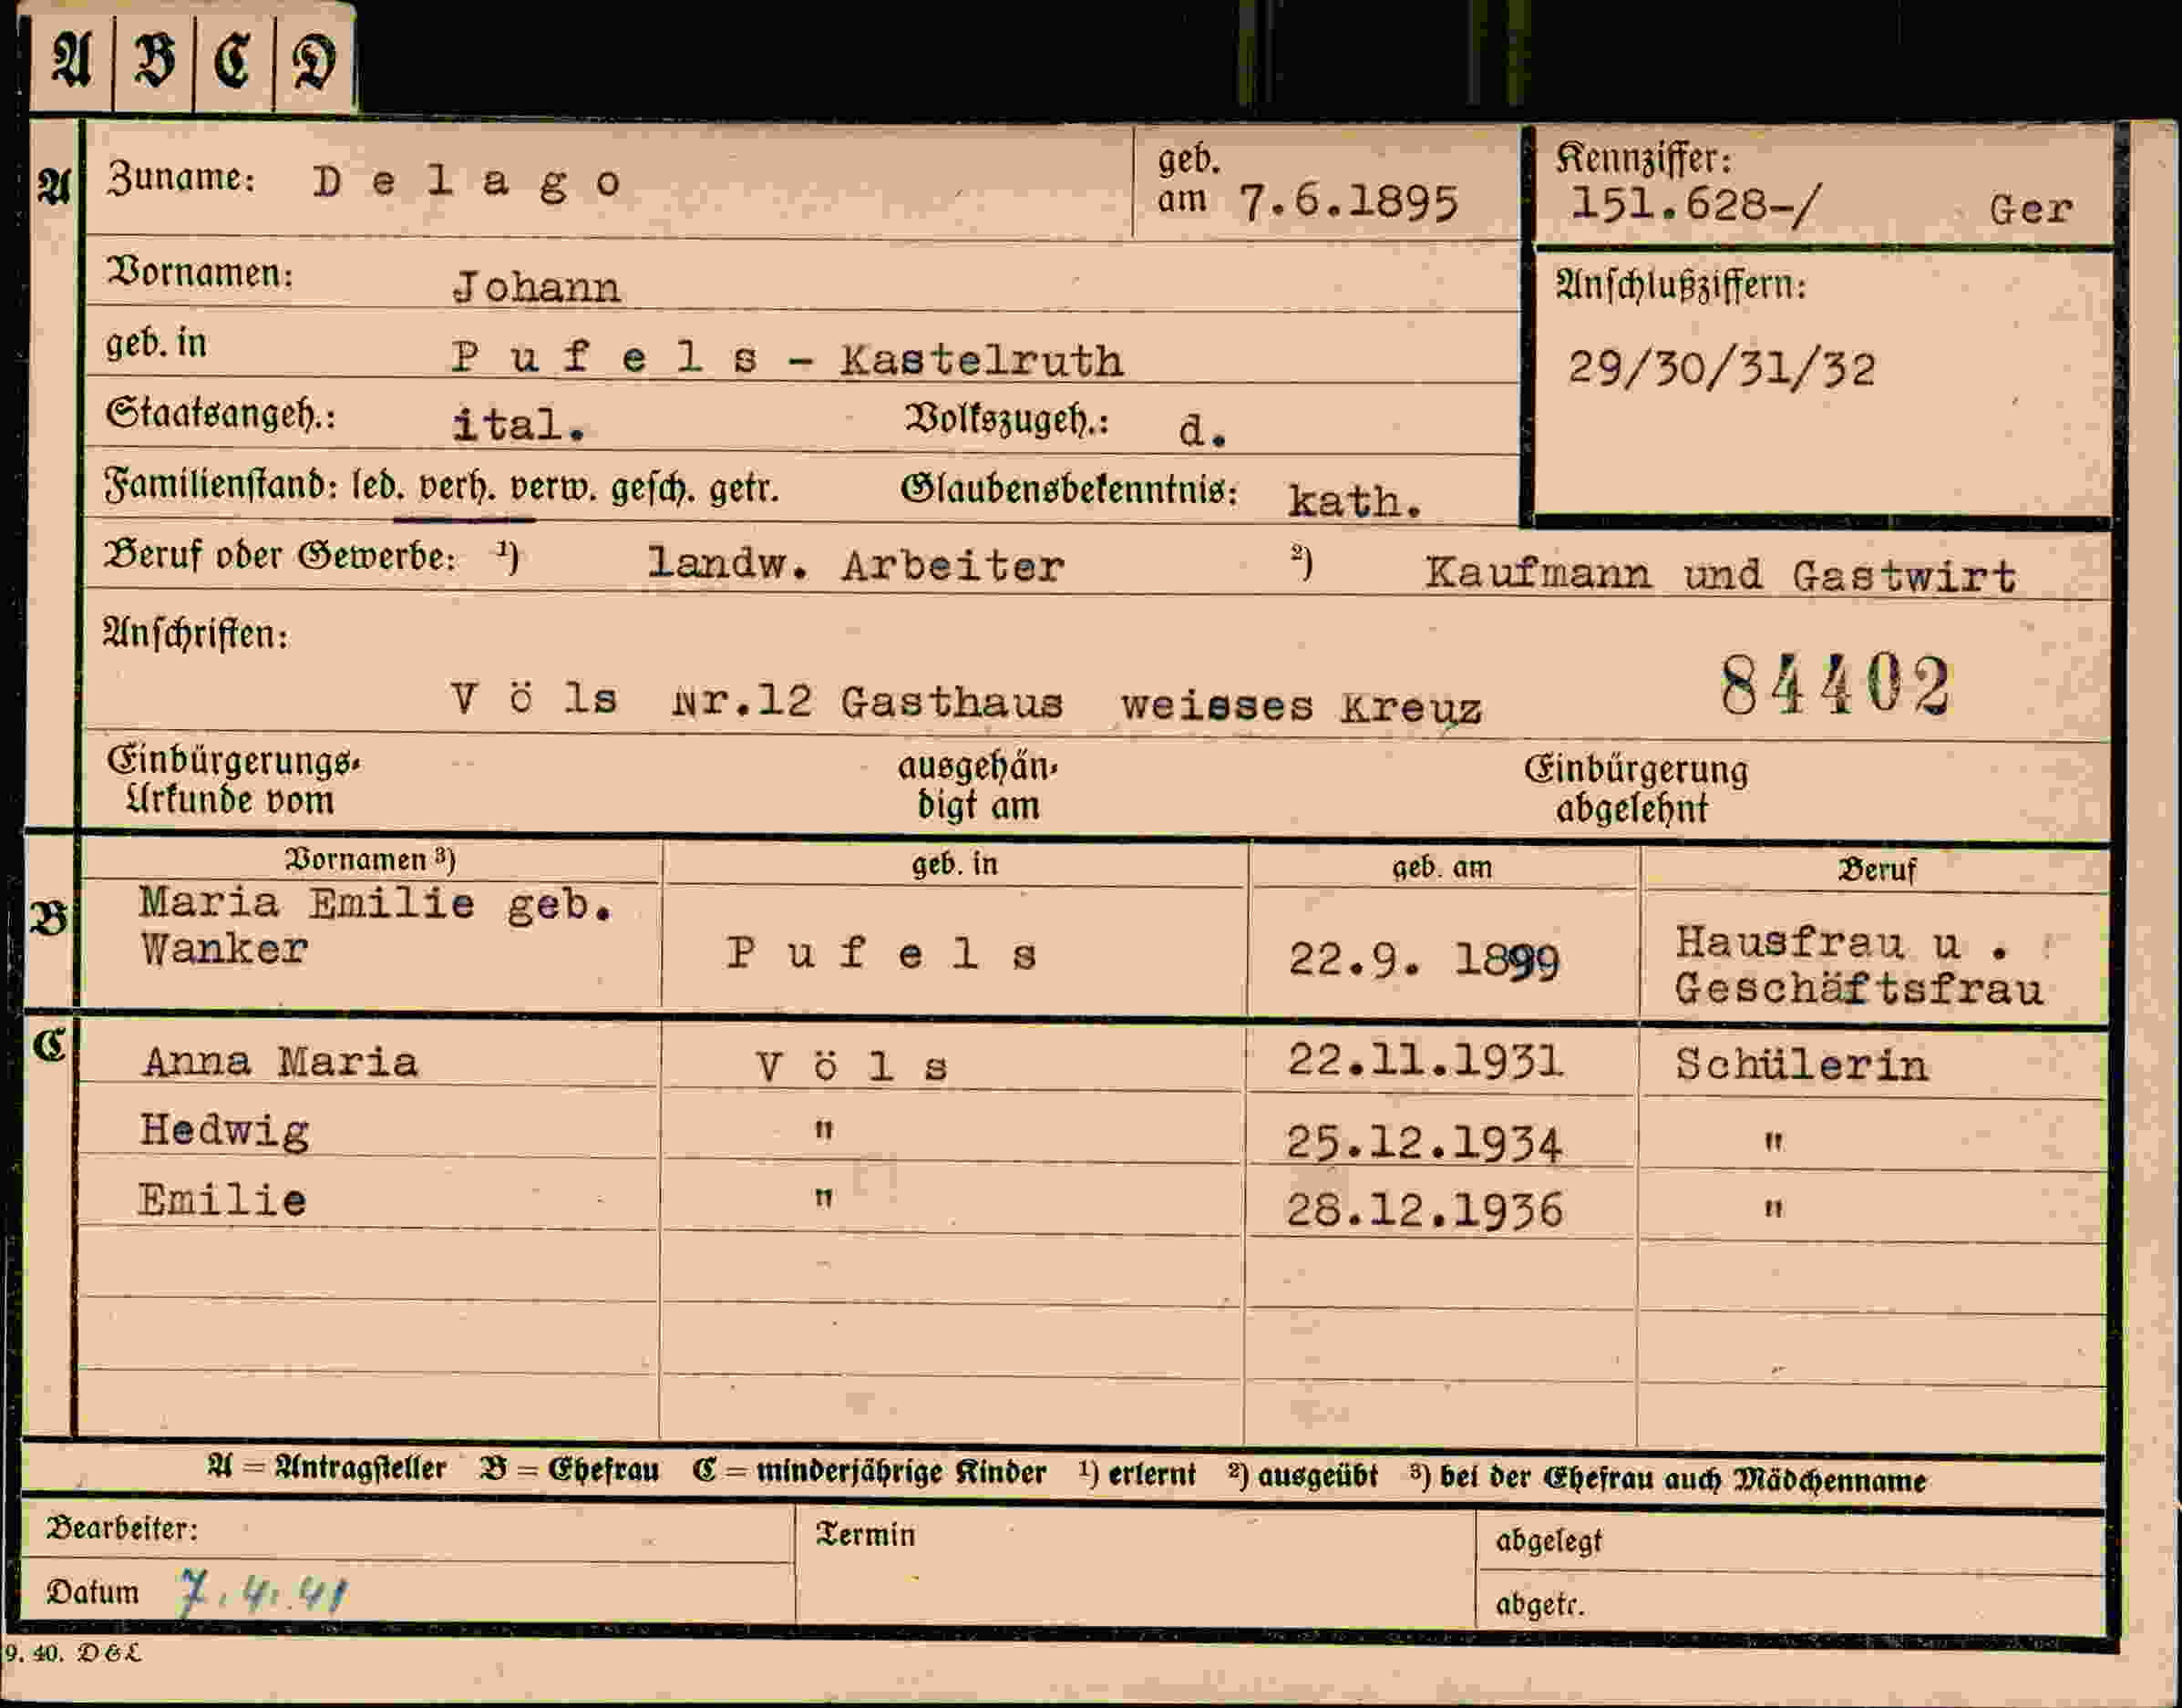 A B C D
A Zuname: Delago geb. am 7.6.1895 Kennziffer: 151.628-/ Ger
Vornamen: Johann Anschlußziffern:
geb. in Pufels - Kastelruth 29/30/31/32
Staatsangeh.: ital. Volkszugeh.: d.
Familienstand: led. verh. verw. gesch. getr. Glaubensbekenntnis: kath.
Beruf oder Gewerbe: ¹) landw. Arbeiter ²) Kaufmann und Gastwirt
Anschriften:
Völs Nr.12 Gasthaus weisses Kreuz 84402
Einbürgerungs- ausgehän- Einbürgerung
Urkunde vom digt am abgelehnt
Vornamen ³) geb. in geb. am Beruf
B Maria Emilie geb.
Wanker Pufels 22.9. 1899 Hausfrau u.
Geschäftsfrau
C Anna Maria Völs 22.11.1931 Schülerin
Hedwig " 25.12.1934 "
Emilie " 28.12.1936 "
A = Antragsteller B = Ehefrau C = minderjährige Kinder ¹) erlernt ²) ausgeübt ³) bei der Ehefrau auch Mädchenname
Bearbeiter: Termin abgelegt
Datum 7.4.41 abgetr.
9. 40. D & L